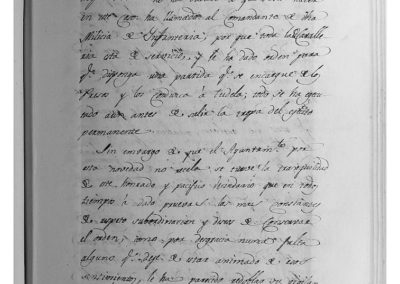 en este caso ha llamado al Comandante de dha
Milicia de Ynfanteria, por que toda la Caballe
ria esta de servicio, y le ha dado orden para
qe. disponga una partida qe. se encargue de los
Presos y los conduzca à Tudela; todo se ha egecu
tado antes de salir la tropa del egto
permanente.
Sin embargo de que el Ayuntamto. por
esta novedad no recela se turbe la tranquilidad
de este honrado y pacifico Vecindario que en todo
tiempo à dado pruebas las mas constantes
de respeto subordinacion y deseos de Conservar
el orden; como por desgracia nunca falta
alguno qe. deje de estar animado de esos
sentimientos, le ha parecido